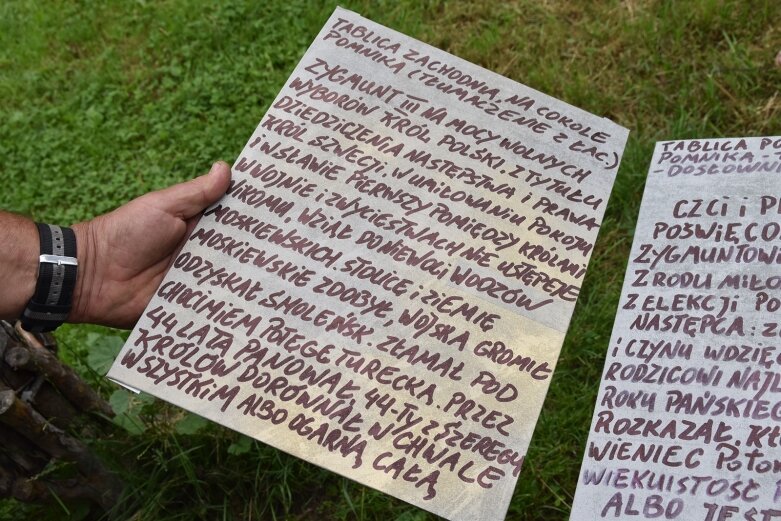 TABLICA ZACHODNIA NA COKOLE
POMNIKA (TŁUMACZENIE Z ŁAC.)
ZYGMUNT III NA MOCY WOLNYCH
WYBORÓW KRÓL POLSKI, Z TYTUŁU
DZIEDZICZENIA NASTĘPSTWA I PRAWA
KRÓL SZWECJI. W UMIŁOWANIU POKOJU
I W SŁAWIE PIERWSZY POMIĘDZY KRÓLAMI
W WOJNIE I ZWYCIĘSTWACH NIE USTĘPUJE
NIKOMU, WZIĄŁ DO NIEWOLI WODZÓW
MOSKIEWSKICH, STOLICĘ I ZIEMIE
MOSKIEWSKIE ZDOBYŁ, WOJSKA GROMIŁ
ODZYSKAŁ SMOLEŃSK. ZŁAMAŁ POD
CHOCIMIEM POTĘGĘ TURECKĄ. PRZEZ
44 LATA PANOWAŁ, 44-TY Z SZEREGU
KRÓLÓW DORÓWNAŁ W CHWALE
WSZYSTKIM ALBO OGARNĄ CAŁĄ
TABLICA PO
POMNIKA -
- DOSŁOWN
CZCI I P
POŚWIĘCO
ZYGMUNTOWI
Z RODU MIŁO
Z ELEKCJI PO
NASTĘPCA: Z
I CZYNU WDZIĘ
RODZICOWI NAJ
ROKU PAŃSKIE
ROZKAZAŁ, KT
WIENIEC POTO
WIEKUISTOŚĆ
ALBO JEST